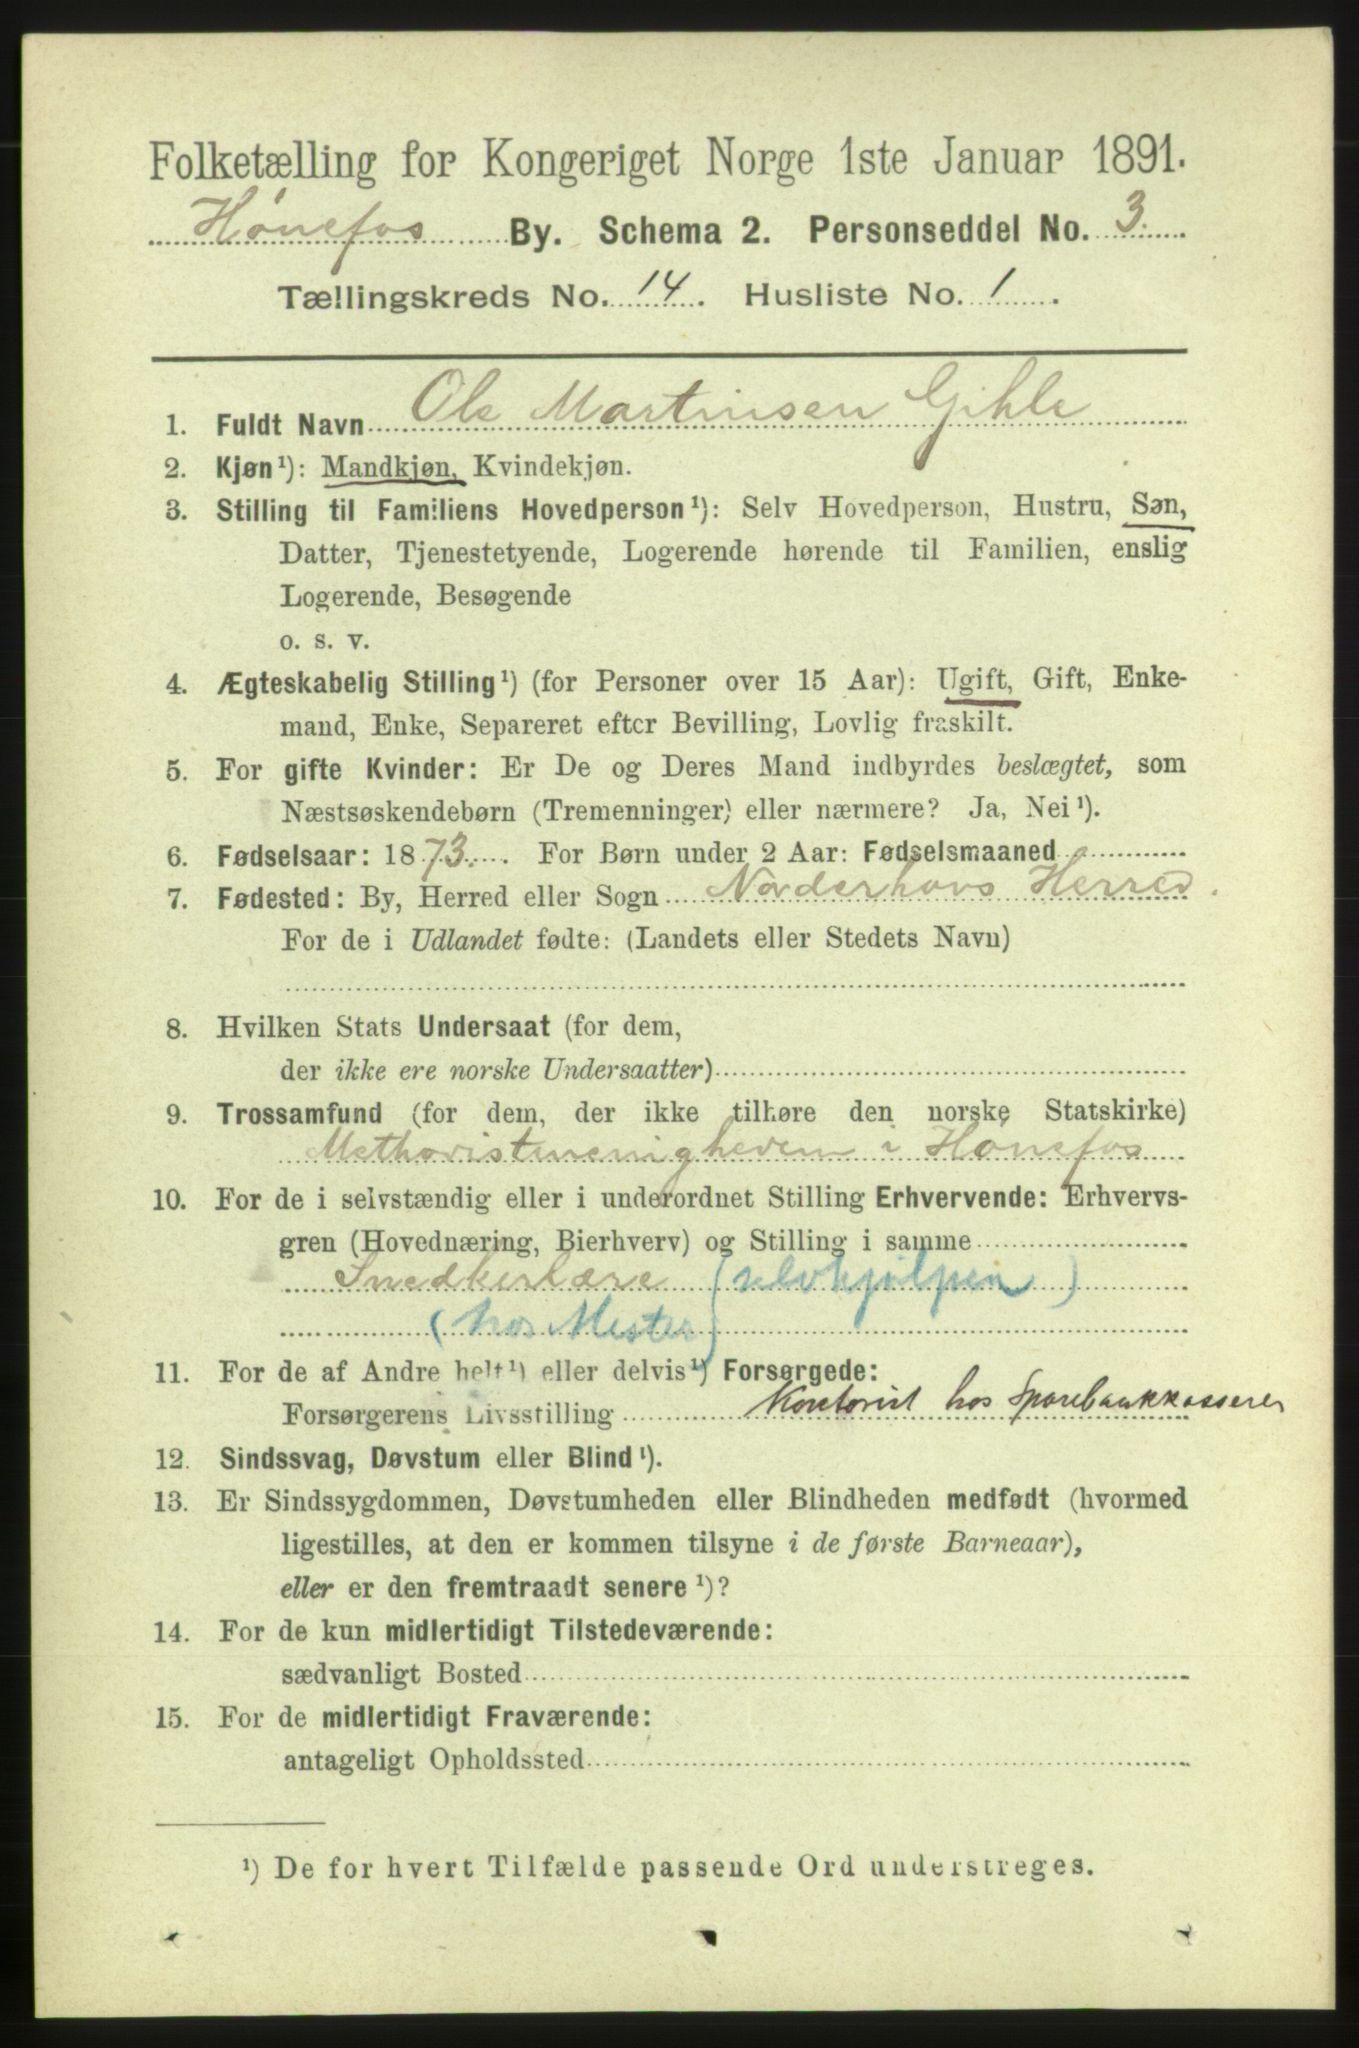 Folketælling for Kongeriget Norge 1ste Januar 1891.
Hønefos By. Schema 2. Personseddel No. 3.
Tællingskreds No. 14. Husliste No. 1.
1. Fuldt Navn Ole Martinsen Gihle
2. Kjøn¹): Mandkjøn, Kvindekjøn.
3. Stilling til Familiens Hovedperson¹): Selv Hovedperson, Hustru, Søn,
Datter, Tjenestetyende, Logerende hørende til Familien, enslig
Logerende, Besøgende
o. s. v.
4. Ægteskabelig Stilling¹) (for Personer over 15 Aar): Ugift, Gift, Enke-
mand, Enke, Separeret efter Bevilling, Lovlig fraskilt.
5. For gifte Kvinder: Er De og Deres Mand indbyrdes beslægtet, som
Næstsøskendebørn (Tremenninger) eller nærmere? Ja, Nei¹).
6. Fødselsaar: 1873. For Børn under 2 Aar: Fødselsmaaned
7. Fødested: By, Herred eller Sogn Norderhovs Herred.
For de i Udlandet fødte: (Landets eller Stedets Navn)
8. Hvilken Stats Undersaat (for dem,
der ikke ere norske Undersaatter)
9. Trossamfund (for dem, der ikke tilhøre den norske Statskirke)
Methodistmenigheden i Hønefos
10. For de i selvstændig eller i underordnet Stilling Erhvervende: Erhvervs-
gren (Hovednæring, Bierhverv) og Stilling i samme
Snedkerlære (selvhjulpen)
(hos Mester)
11. For de af Andre helt¹) eller delvis¹) Forsørgede:
Forsørgerens Livsstilling Kontorist hos Sparebankkasserer
12. Sindssvag, Døvstum eller Blind¹).
13. Er Sindssygdommen, Døvstumheden eller Blindheden medfødt (hvormed
ligestilles, at den er kommen tilsyne i de første Barneaar),
eller er den fremtraadt senere¹)?
14. For de kun midlertidigt Tilstedeværende:
sædvanligt Bosted
15. For de midlertidigt Fraværende:
antageligt Opholdssted
¹) De for hvert Tilfælde passende Ord understreges.